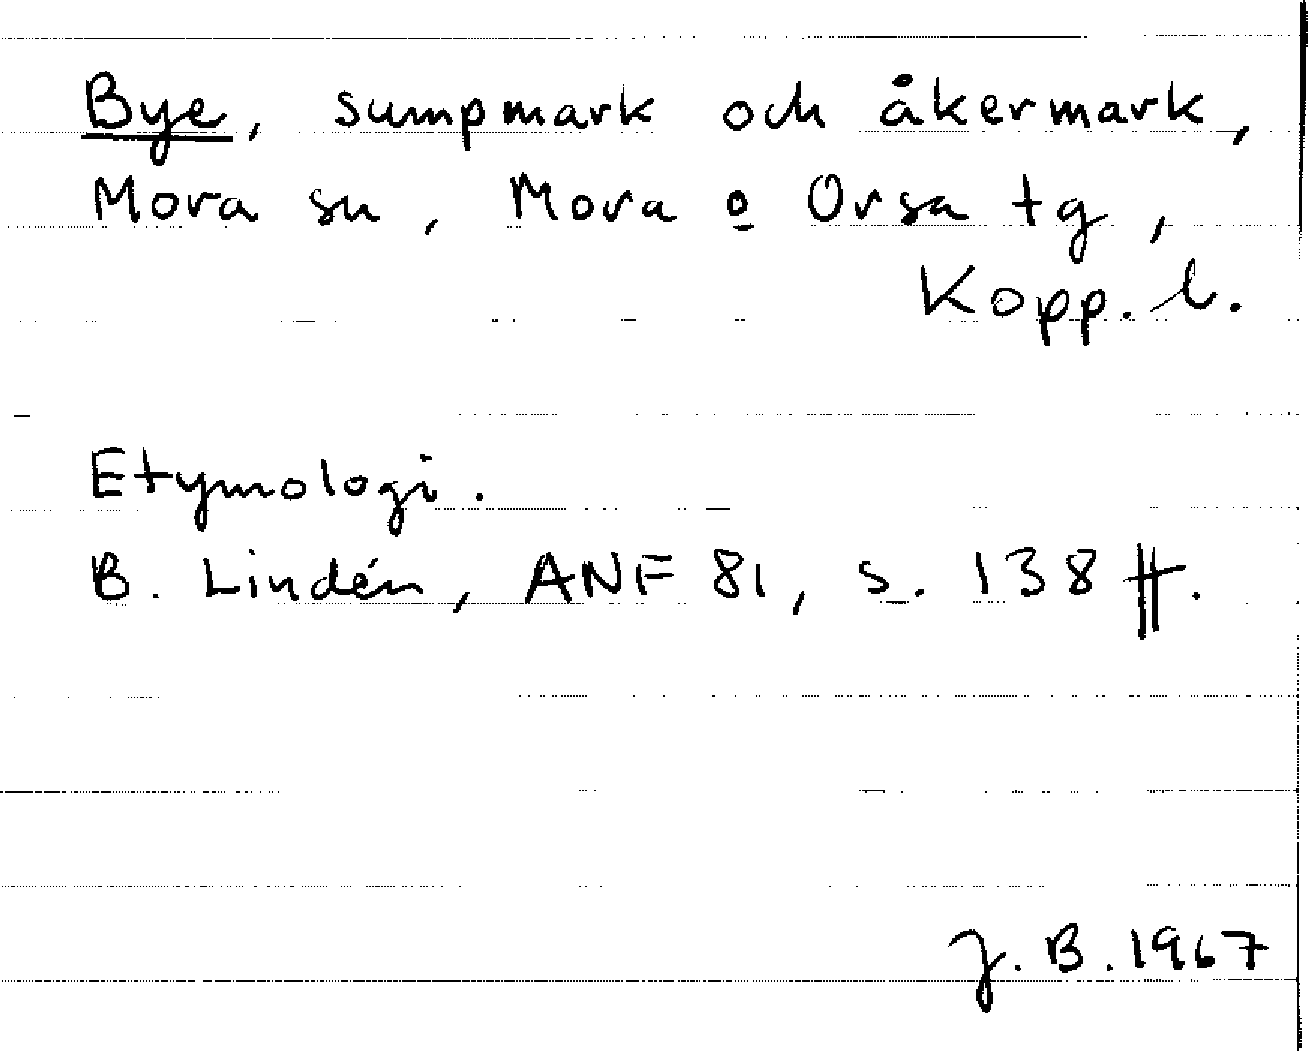 Bye, sumpmark och åkermark,
Mora sn, Mora o Orsa tg,
Kopp. l.
Etymologi.
B. Lindén, ANF 81, s. 138 ff.
J. B. 1967